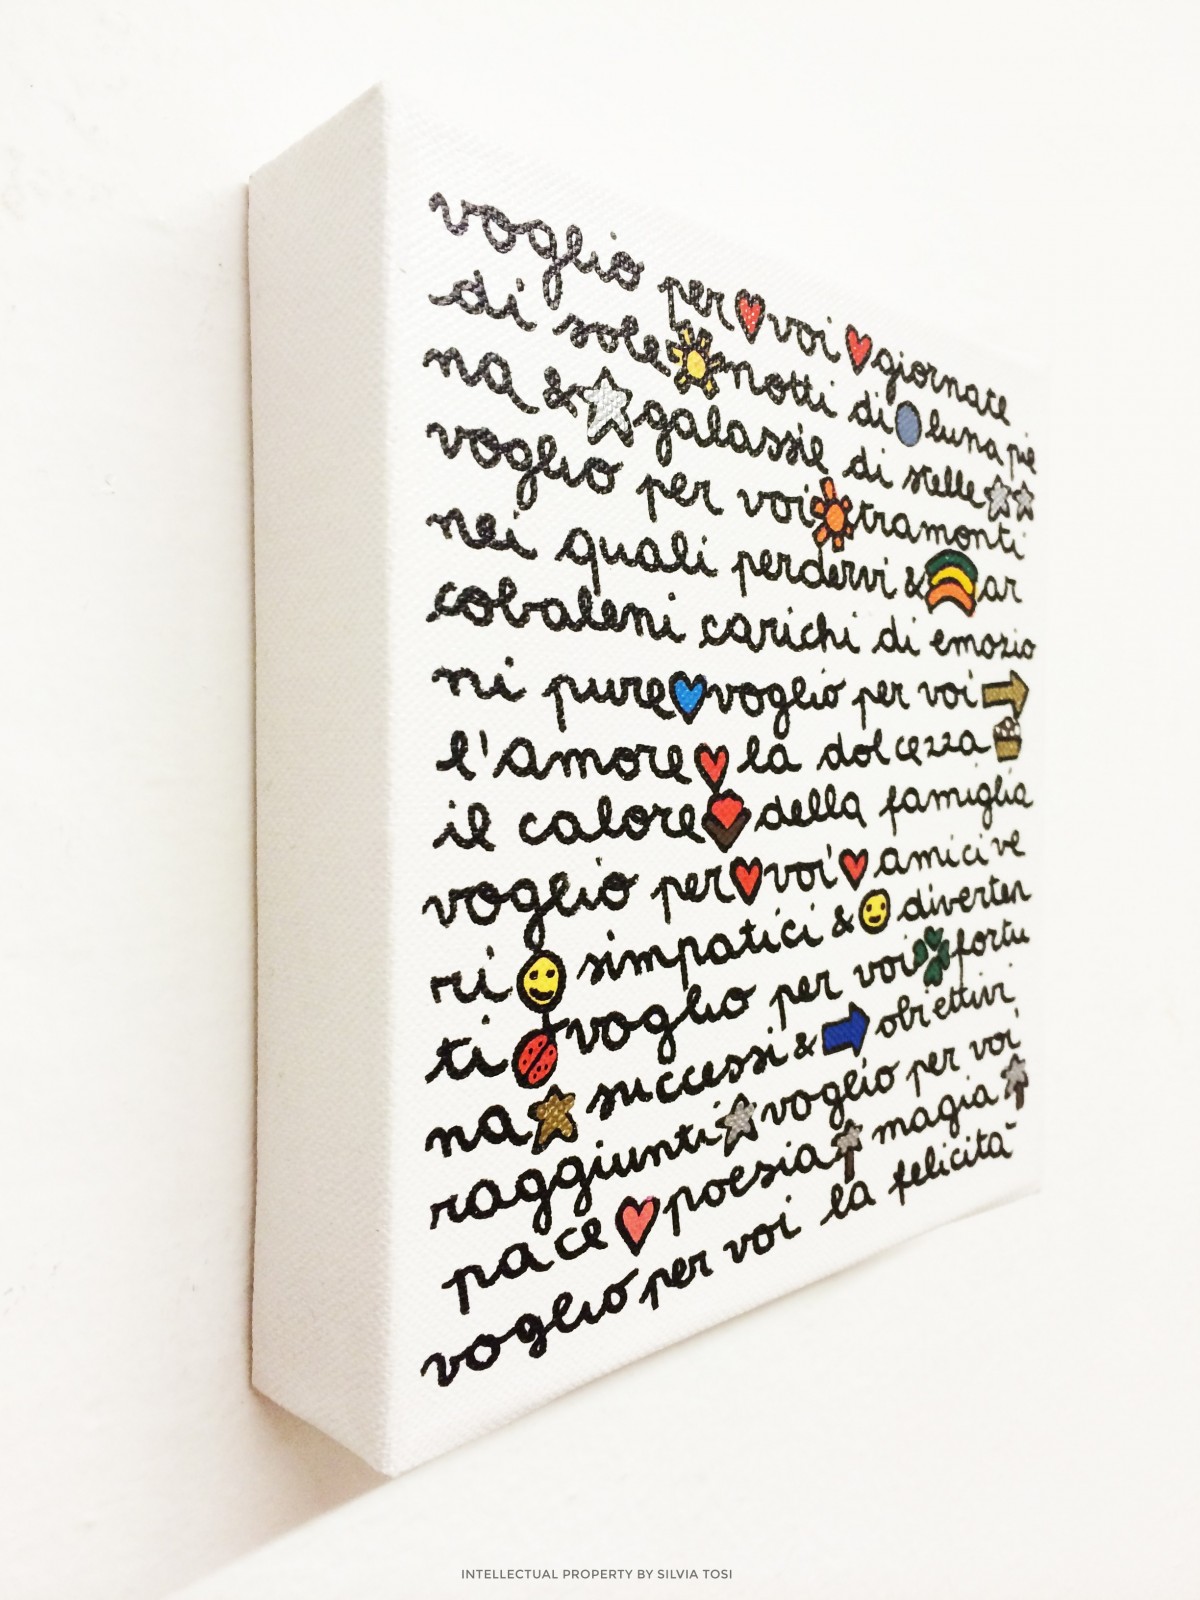 voglio per voi giornate
di sole notti di luna pie
na & galassie di stelle
voglio per voi tramonti
nei quali perdervi & ar
cobaleni carichi di emozio
ni pure voglio per voi
l'amore la dolcezza
il calore della famiglia
voglio per voi amici ve
ri simpatici & diverten
ti voglio per voi fortu
na successi & obiettivi
raggiunti voglio per voi
pace poesia magia
voglio per voi la felicità
INTELLECTUAL PROPERTY BY SILVIA TOSI